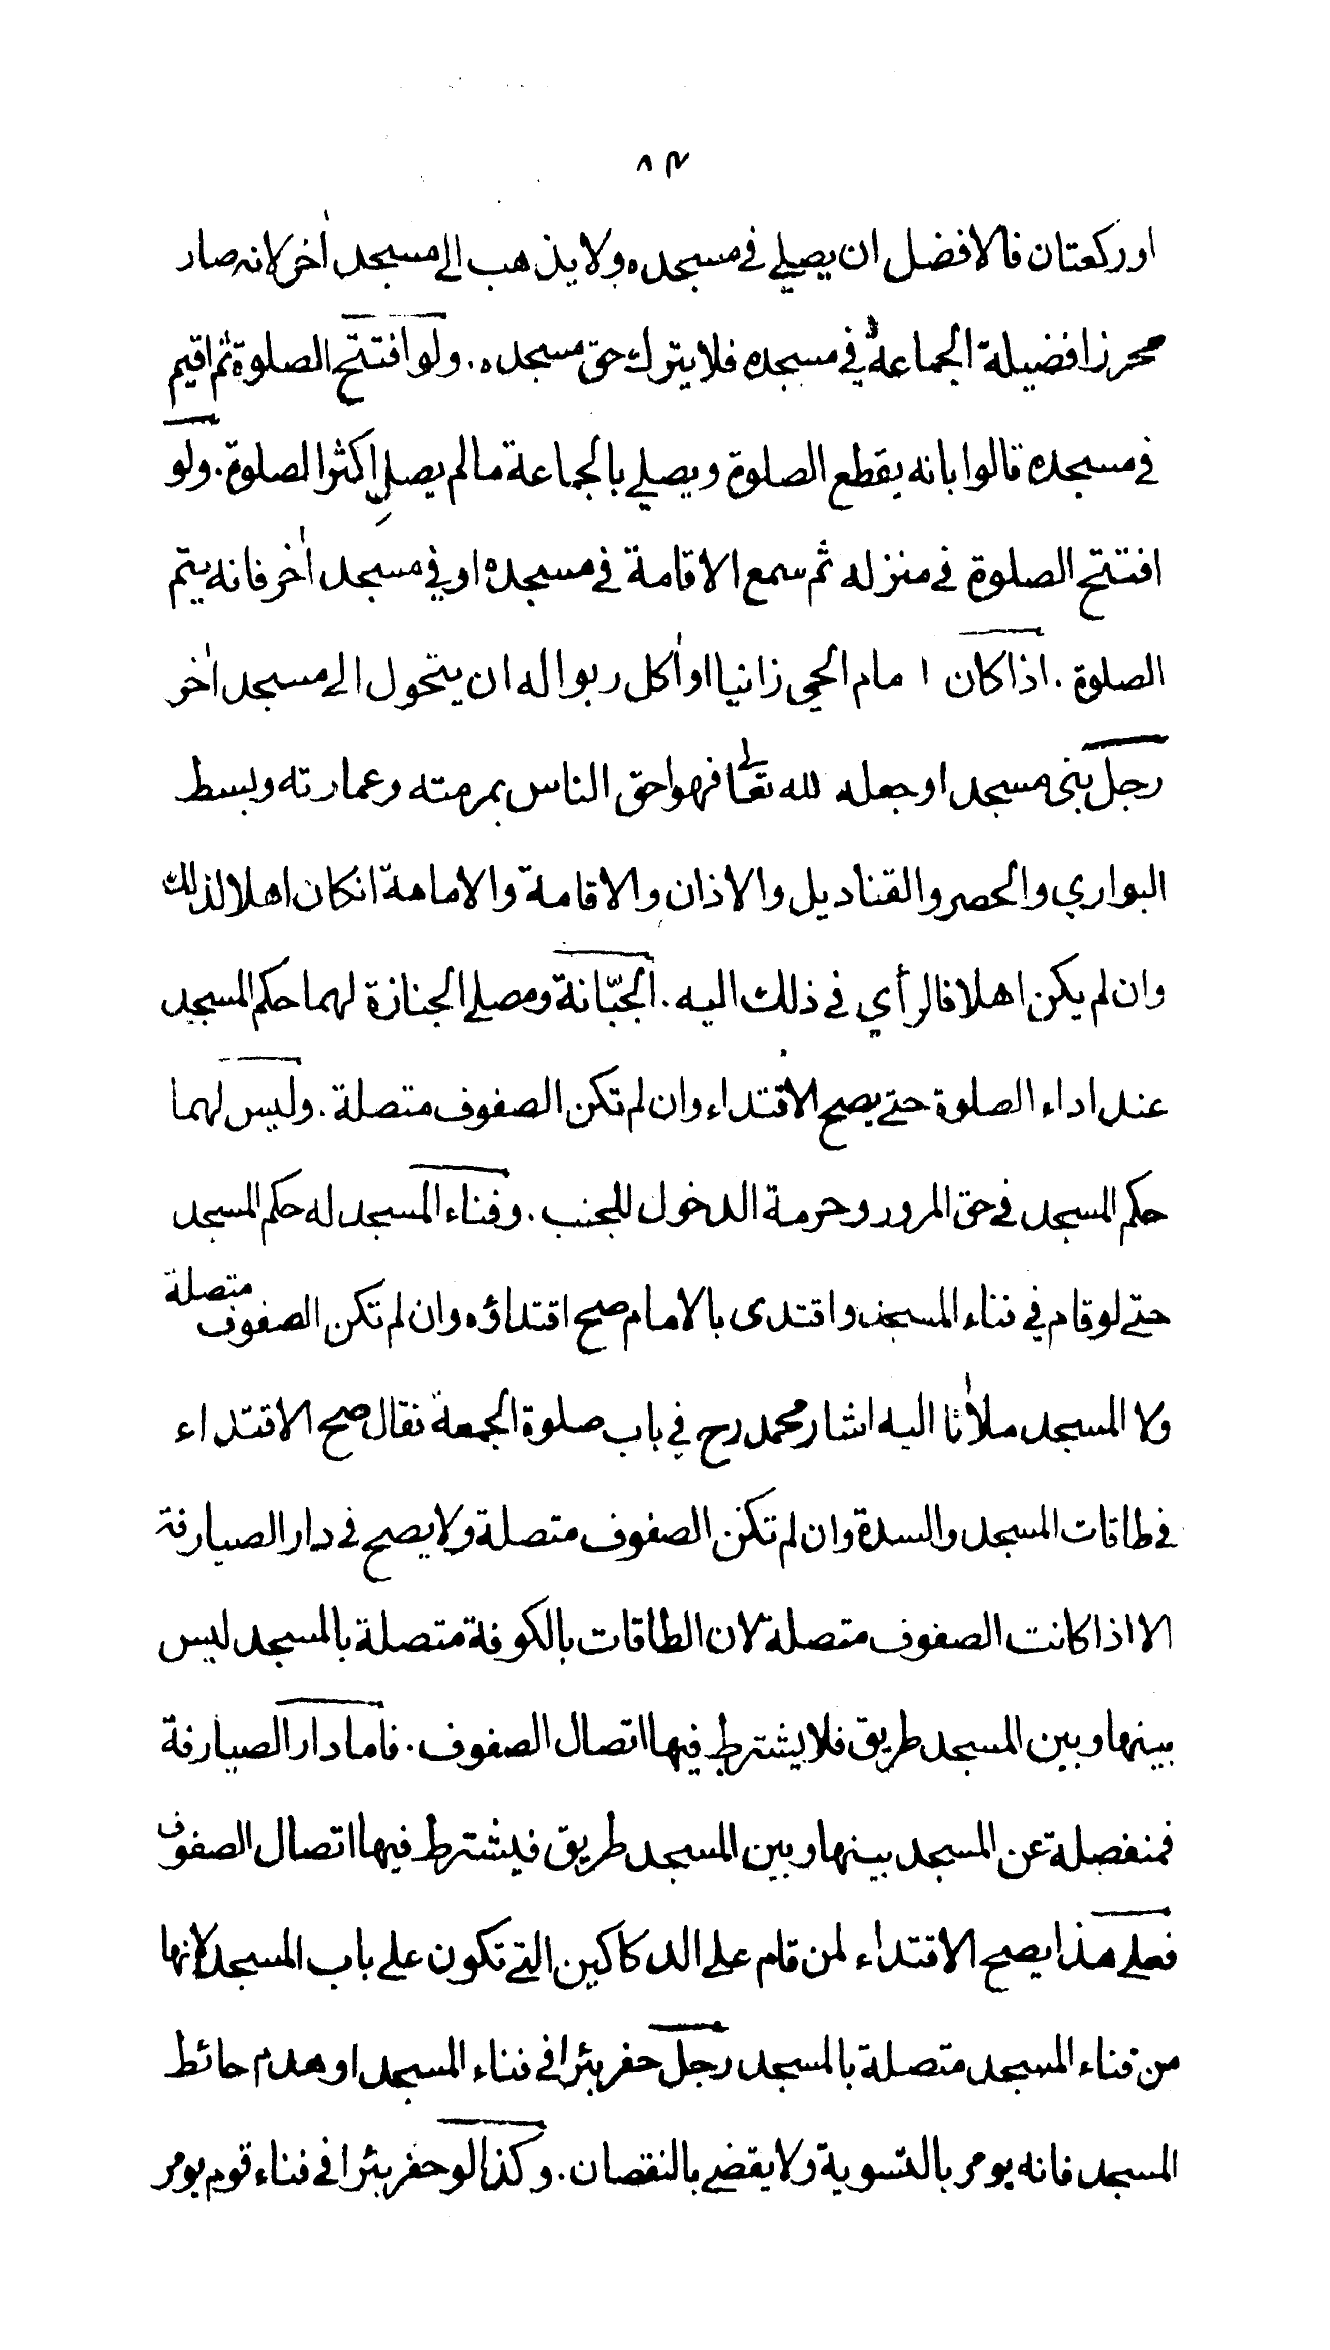 ٨٣
او ركعتان فالافضل ان يصلي في مسجده ولا يذهب الى مسجد اٰخر لانه صار
محرزا فضيلة الجماعة في مسجده فلا يترك حق مسجده. ولو افتتح الصلوة ثم اقيم
في مسجده قالوا بانه يقطع الصلوة ويصلي بالجماعة ما لم يصل اكثر الصلوة. ولو
افتتح الصلوة في منزله ثم سمع الاقامة في مسجده او في مسجد اٰخر فانه يتم
الصلوة. اذا كان امام الحي زانيا او اٰكل ربوا له ان يتحول الى مسجد اٰخر
رجل بنى مسجدا وجعله لله تعا فهو احق الناس بمرمته وعمارته وبسط
البواري والحصر والقناديل والاذان والاقامة والامامة ان كان اهلا لذلك
وان لم يكن اهلا فالرأي في ذلك اليه. الجبّانة ومصلى الجنازة لهما حكم المسجد
عند اداء الصلوة حتى يصح الاقتداء وان لم تكن الصفوف متصلة. وليس لهما
حكم المسجد في حق المرور وحرمة الدخول للجنب. وفناء المسجد له حكم المسجد
حتى لو قام في فناء المسجد واقتدى بالامام صح اقتداؤه وان لم تكن الصفوف متصلة
ولا المسجد ملاٰنا اليه اشار محمد رح في باب صلوة الجمعة فقال صح الاقتداء
في طاقات المسجد والسدة وان لم تكن الصفوف متصلة ولا يصح في دار الصيارفة
الا اذا كانت الصفوف متصلة لان الطاقات بالكوفة متصلة بالمسجد ليس
بينها وبين المسجد طريق فلا يشترط فيها اتصال الصفوف. فاما دار الصيارفة
فمنفصلة عن المسجد بينها وبين المسجد طريق فيشترط فيها اتصال الصفوف
فعلى هذا يصح الاقتداء لمن قام على الدكاكين التي تكون على باب المسجد لانها
من فناء المسجد متصلة بالمسجد رجل حفر بئرا في فناء المسجد او هدم حائط
المسجد فانه يومر بالتسوية ولا يقضى بالنقصان. وكذا لو حفر بئرا في فناء قوم يومر